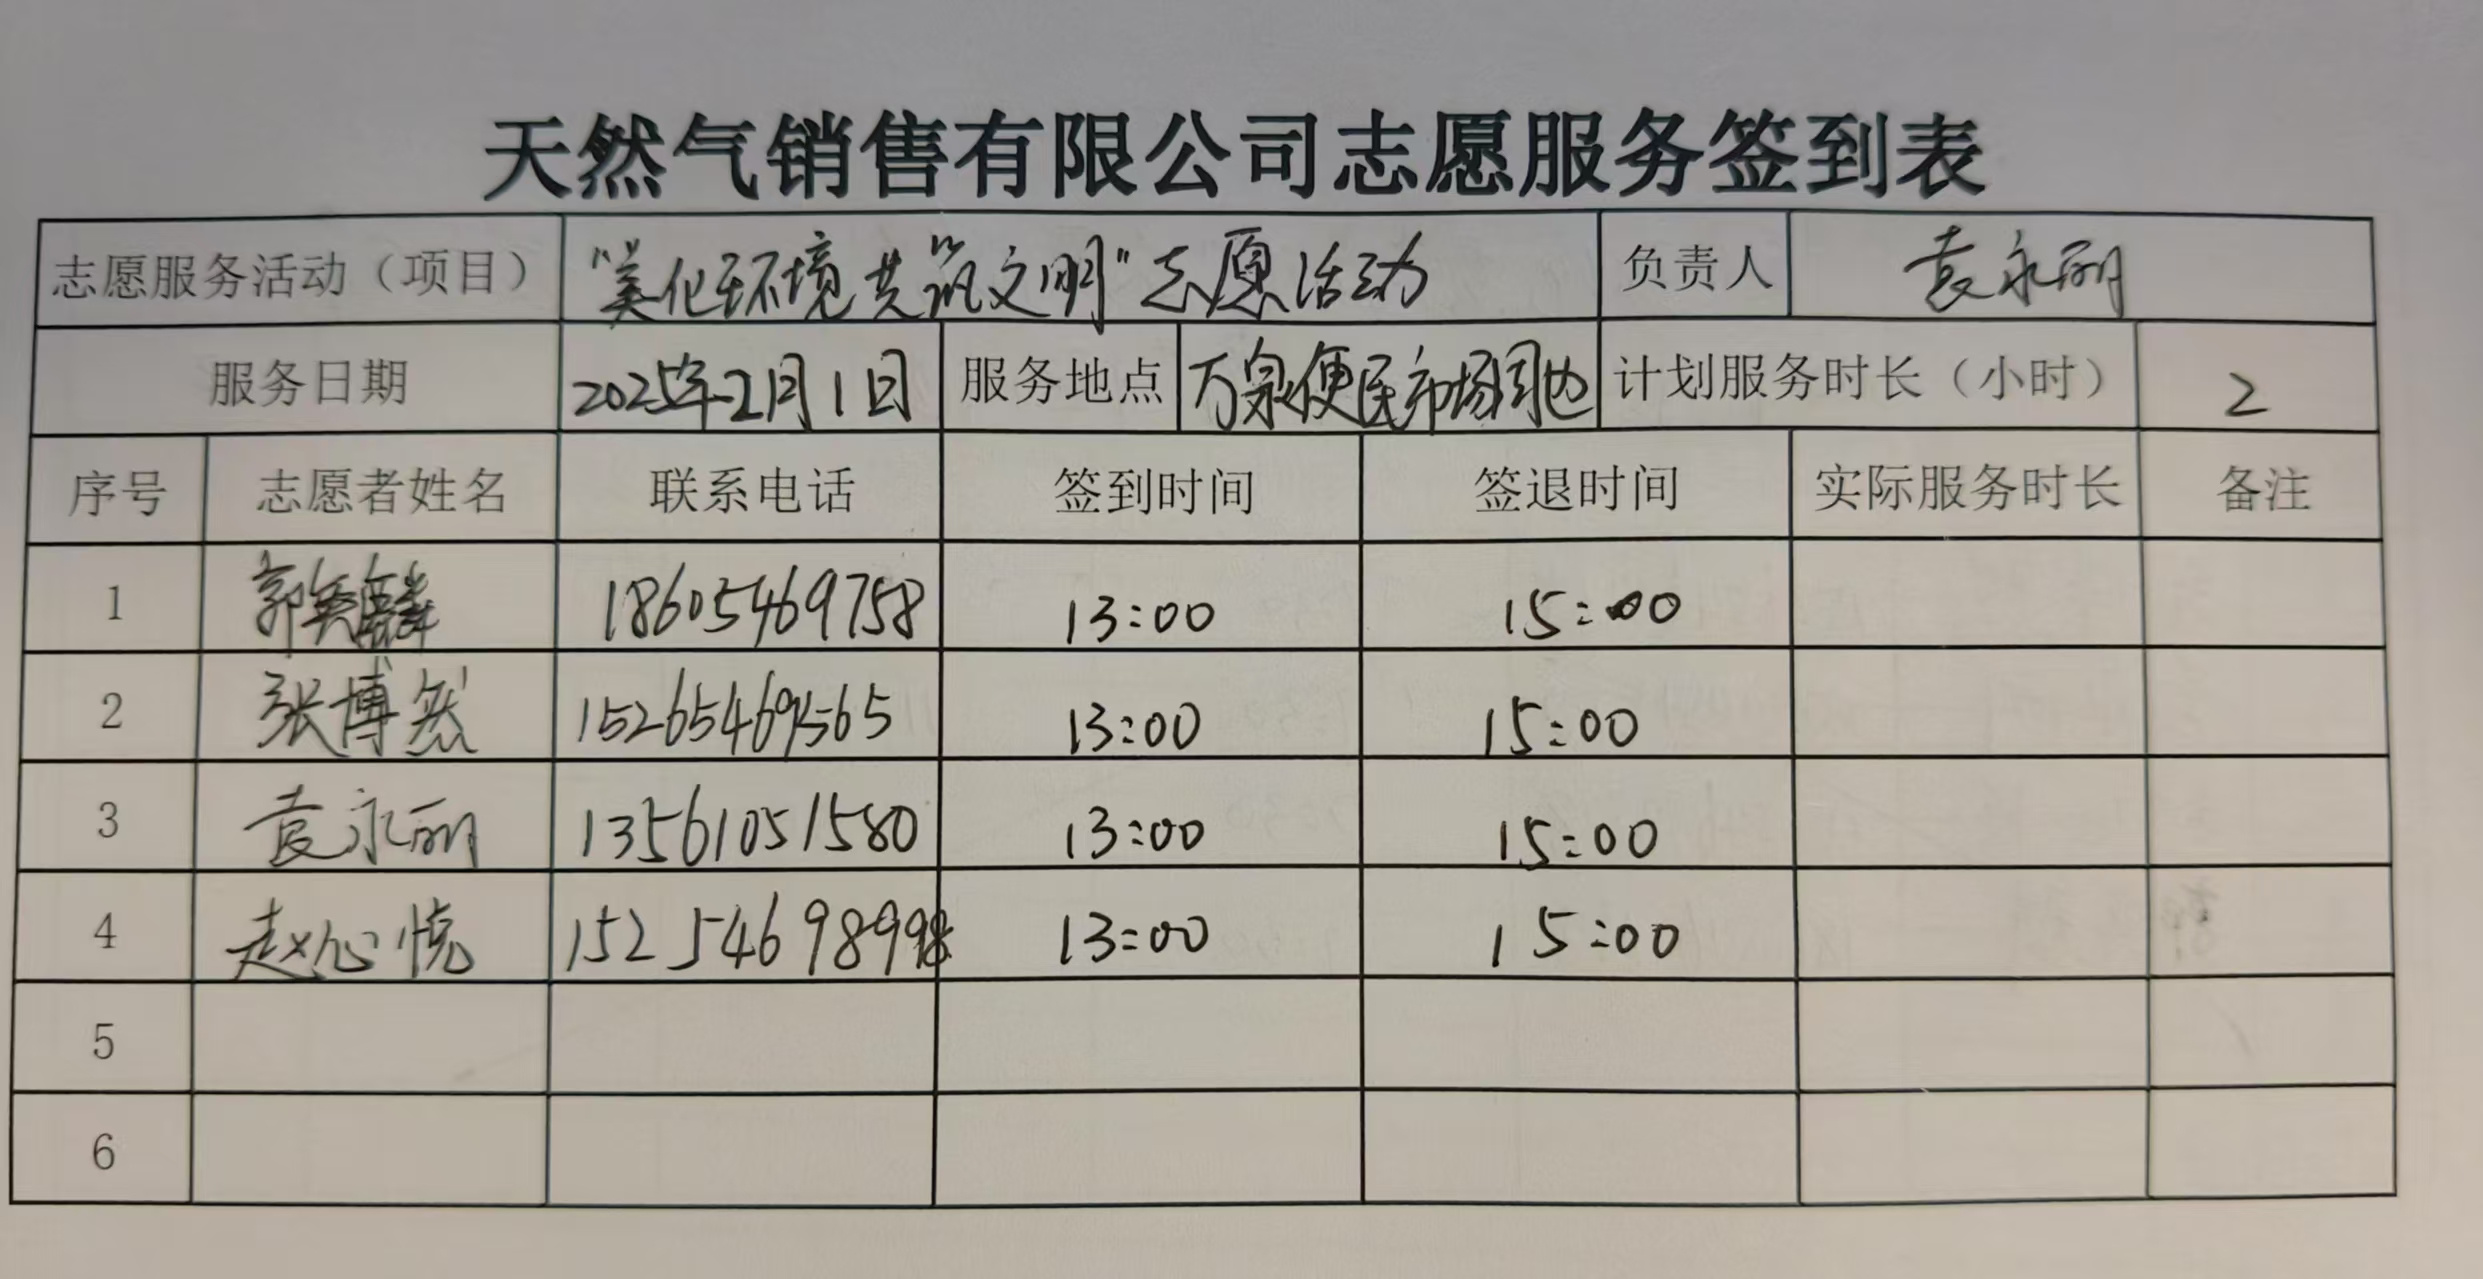 天然气销售有限公司志愿服务签到表
志愿服务活动（项目） “美化环境 共筑文明”志愿活动 负责人 袁永丽
服务日期 2025年2月1日 服务地点 万泉便民市场周边 计划服务时长（小时） 2
序号 志愿者姓名 联系电话 签到时间 签退时间 实际服务时长 备注
1 郭 麟 18605469758 13:00 15:00
2 张博然 15265469565 13:00 15:00
3 袁永丽 13561051580 13:00 15:00
4 赵心悦 15254698998 13:00 15:00
5
6